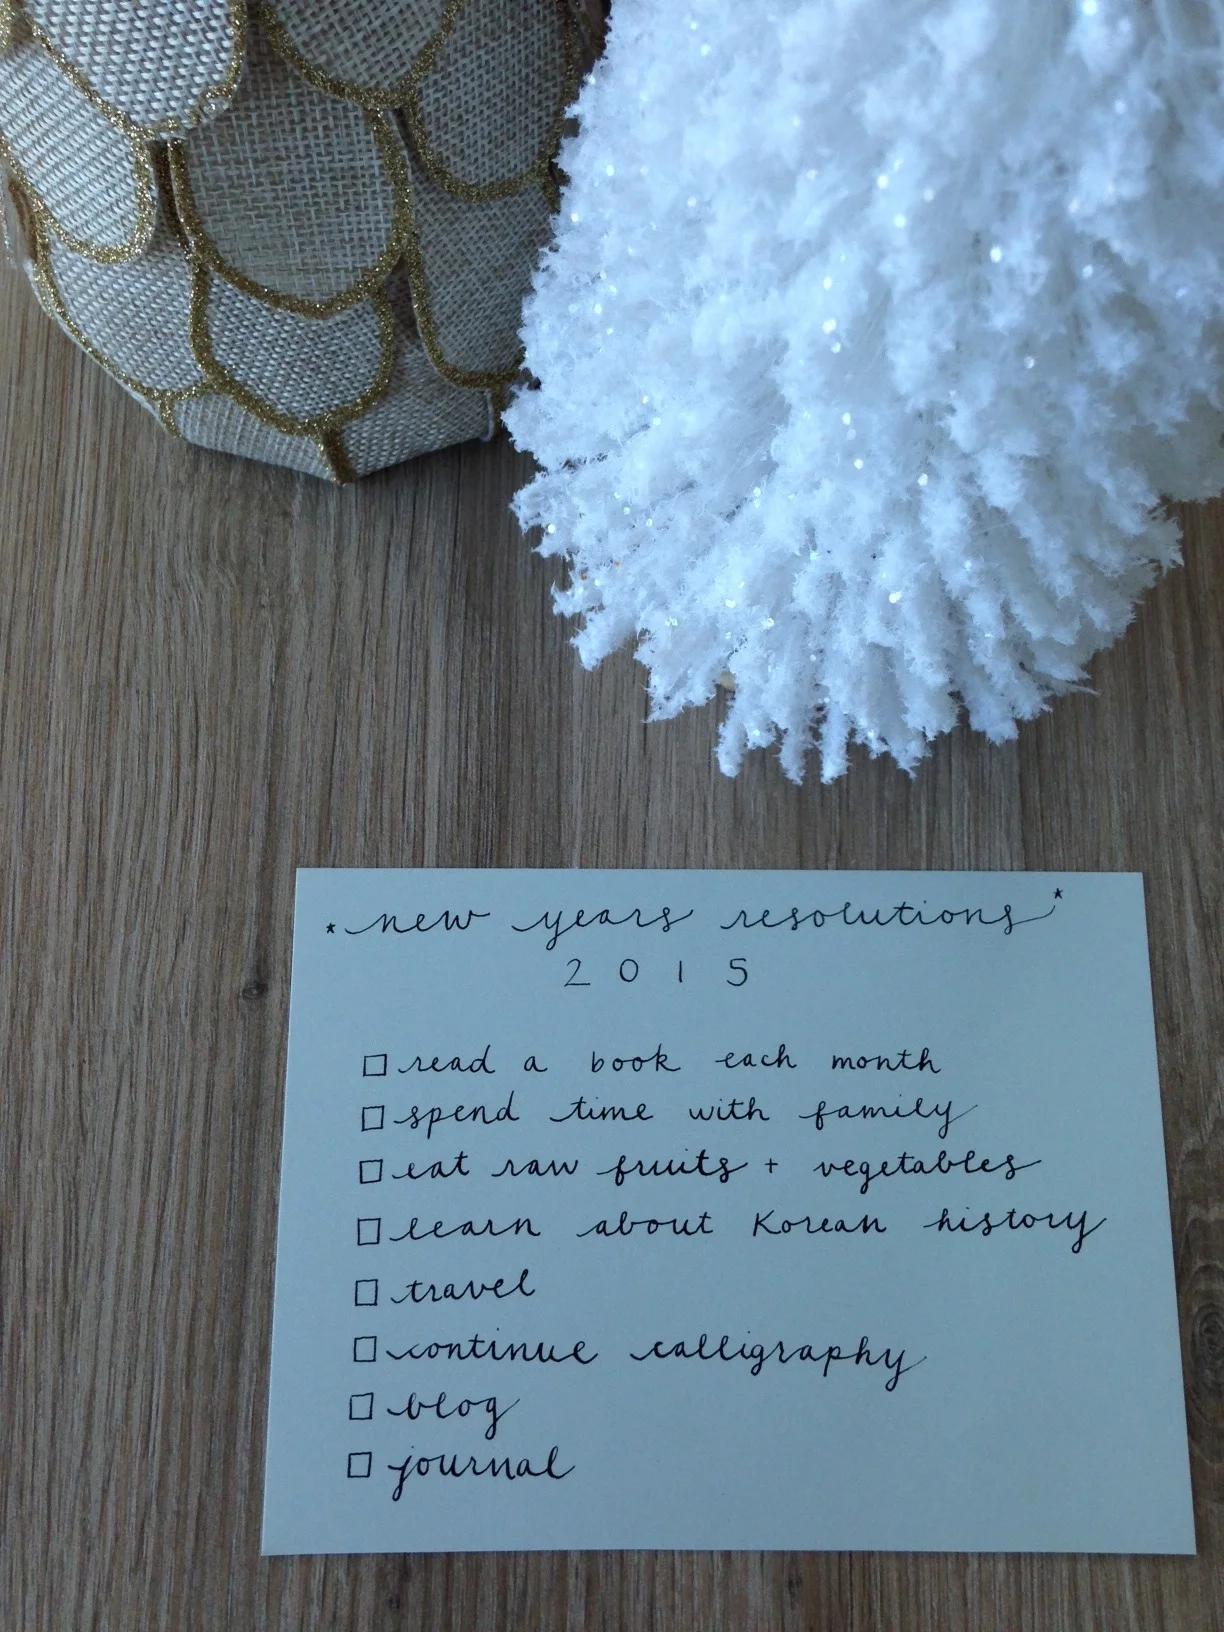 * new years resolutions *
2015
□ read a book each month
□ spend time with family
□ eat raw fruits + vegetables
□ learn about Korean history
□ travel
□ continue calligraphy
□ blog
□ journal